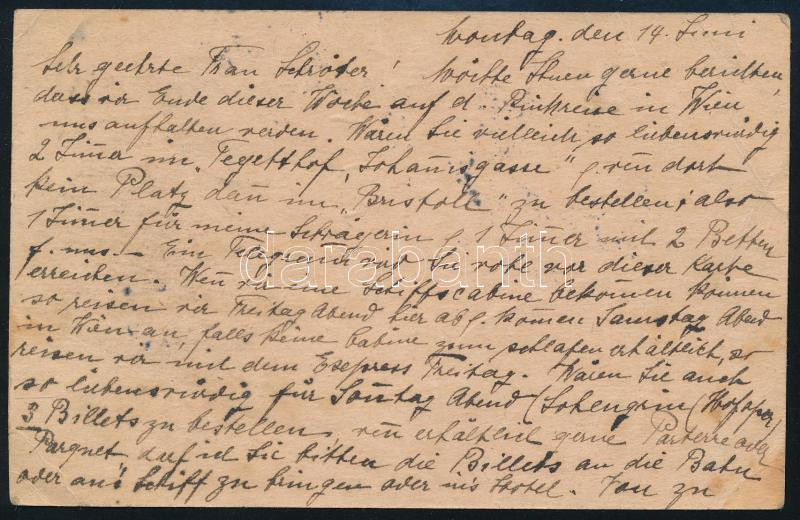 Montag, den 14. Juni
Sehr geehrte Frau Schröder! Möchte Ihnen gerne berichten,
dass wir Ende dieser Woche auf d. Rückreise in Wien
uns aufhalten werden. Wären Sie vielleich so liebenswürdig
2 Zimer im „Tegetthof, Johannisgasse" & wen dort
kein Platz dan im „Bristoll" zu bestellen; also
1 Zimer für meine Schwägerin & 1 Zimer mit 2 Betten
f. uns. – Ein Telegramm wird Sie wohl vor dieser Karte
erreichen. Wen wir eine Schiffscabine bekomen können
so reisen wir Freitag Abend hier ab & komen Samstag Abend
in Wien an, falls keine Cabine zum schlafen erhältlich, so
reisen wir mit dem Express Freitag. Wären Sie auch
so liebenswürdig für Sontag Abend (Lohengrin (Hofoper)
3 Billets zu bestellen, wen erhältlich gerne Parterre oder
Parquet darf ich Sie bitten die Billets an die Bahn
oder an's Schiff zu bringen oder in's Hotel. zu
darabanth